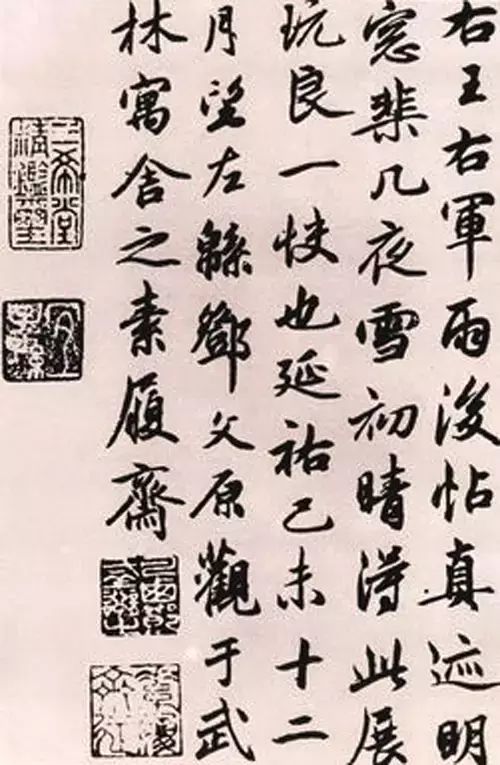 右王右軍雨後帖真迹明
窓棐几夜雪初晴得此展
玩良一快也延祐己未十二
月望左緜鄧文原觀于武
林寓舍之素履齋
三希堂
精鑑璽
宜
子孫